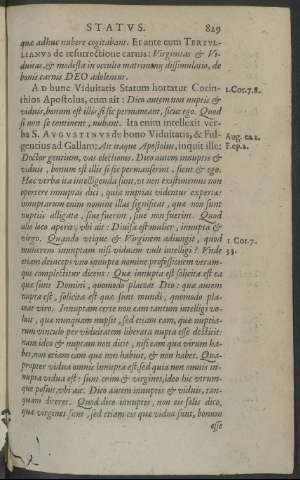 STATVS. 829
quæ adhuc nubere cogitabant. Et ante eum TERTVL-
LIANVS de resurrectione carnis: Virginitas & Vi-
duitas, & modesta in occulto matrimonij dissimulatio, de
bonis carnis DEO adolentur.
Ad hunc Viduitatis Statum hortatur Corin- 1.Cor.7.8.
thios Apostolus, cum ait: Dico autem non nuptis &
viduis, bonum est illis si sic permaneant, sicut ego. Quod
si non se continent, nubant. Ita enim intellexit ver-
ba S. AVGVSTINVS de bono Viduitatis, & Ful- Aug. ca.2.
gentius ad Gallam: Ait itaque Apostolus, inquit ille: F.ep.2.
Doctor gentium, vas electionis. Dico autem innuptis &
viduis, bonum est illis si sic permanserint, sicut & ego.
Hæc verba ita intelligenda sunt, vt non existimemus non
oportere innuptas dici, quia nuptiæ videntur experta:
innuptarum enim nomine illas significat, quæ non sunt
nuptijs alligatæ, siue fuerint, siue non fuerint. Quod
alio loco aperit, vbi ait: Diuisa est mulier, innupta &
virgo. Quando vtique & Virginem adiungit, quid 1 Cor.7.
mulierem innuptam nisi viduam vult intelligi? Vnde 33.
etiam deinceps vno innuptæ nomine professionem veram-
que complectitur dicens: Quæ innupta est solicita est ea
quæ sunt Domini, quomodo placeat Deo: quæ autem
nupta est, solicita est quæ sunt mundi, quomodo pla-
ceat viro. Innuptam certe non eam tantum intelligi vo-
luit, quæ nunquam nupsit, sed etiam eam, quæ nuptia-
rum vinculo per viduitatem liberata nupta esse destitit:
nam ideo & nuptam non dicit, nisi eam quæ virum ha-
bet, non etiam eam quæ non habuit, & non habet. Qua-
propter vidua omnis innupta est, sed quia non omnis in-
nupta vidua est: sunt enim & virgines, ideo hic vtrum-
que posuit, vbi ait: Dico autem innuptis & viduis, tan-
quam diceret. Quod dico innuptis, non eis solis dico,
quæ virgines sunt, sed etiam eis quæ viduæ sunt, bonum
esse